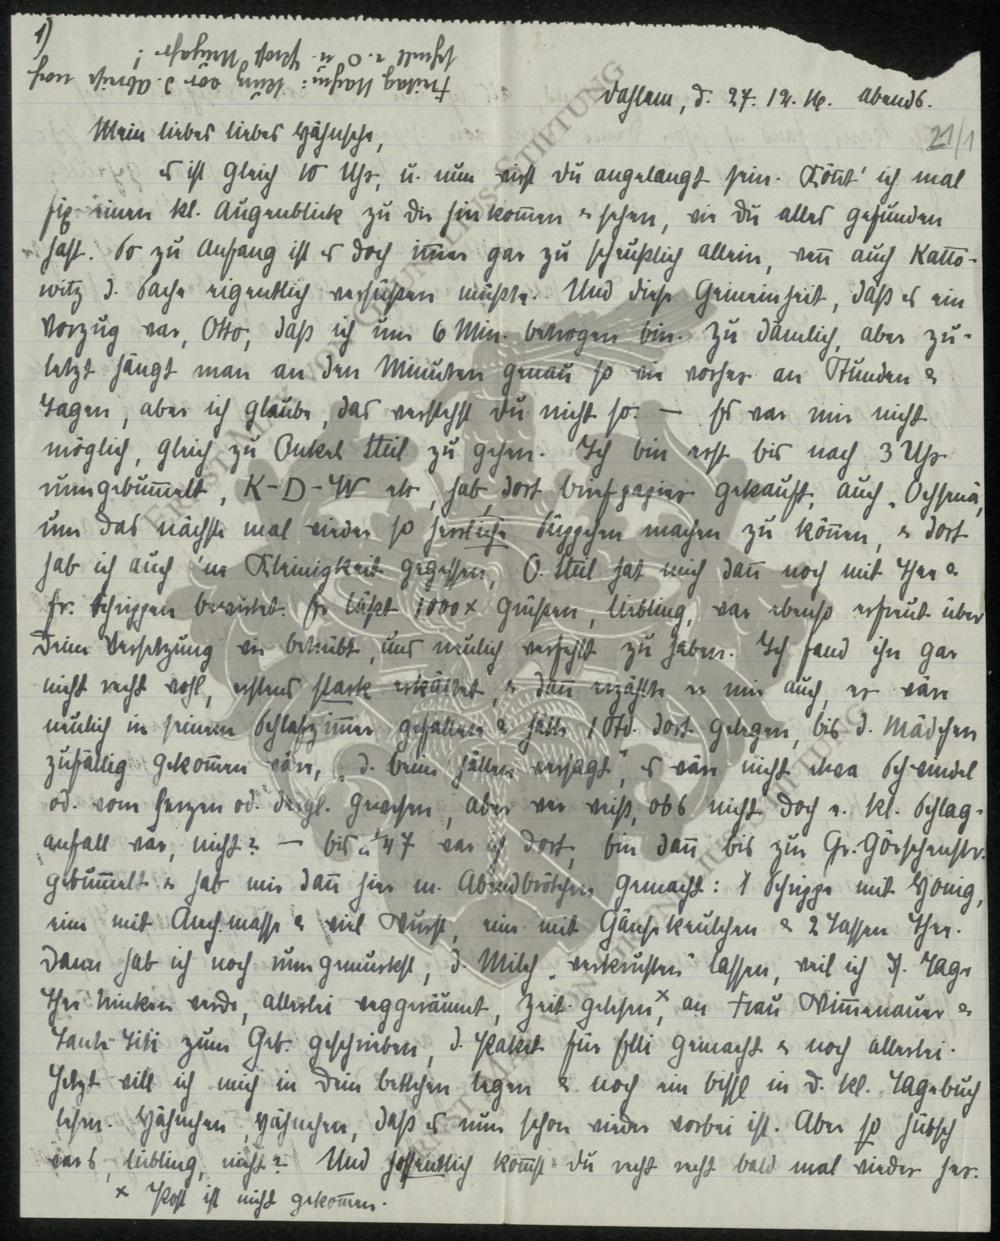 1)
Freitag Nachm: Kung vor d. Abreise noch
schnell n. O n. grosse
Dahlem, d. 27. 12. 16. abends.
21/1
Mein liebes liebes Hähnsche,
es ist gleich 10 Uhr, u. nun wirst du angelangt sein. Könnt' ich mal
fix einen kl. Augenblick zu dir hinkom̅en & sehen, wie du alles gefunden
hast. So zu Anfang ist es doch im̅er gar zu scheußlich allein, wen̅ auch Katto-
witz d. Sache eigentlich versüßen müßte. Und diese Gemeinheit, daß es ein
Vorzug war, Otto, daß ich um 6 Min. betrogen bin. Zu dämlich, aber zu-
letzt hängt man an den Minuten genau so wie vorher an Stunden &
Tagen, aber ich glaube, das verstehst du nicht so. — Es war mir nicht
möglich, gleich zu Onkel Stiil zu gehen. Ich bin erst bis nach 3 Uhr
rumgebum̅elt, K-D-W etc, hab dort Briefpapier gekauft, auch „Ochsena",
um das nächste mal wieder so herrliche Süppchen machen zu kön̅en, & dort
hab ich auch 'ne Kleinigkeit gegessen, O. Stiil hat mich dan̅ noch mit Thee &
fr. Schrippen bewirtet. Er läßt 1000x grüßen, Liebling, war ebenso erfreut über
Deine Versetzung wie betrübt, uns neulich verfehlt zu haben. Ich fand ihn gar
nicht recht wohl, erstens stark erkältet, & dan̅ erzählte er mir auch, er wäre
neulich in seinem Schlafzim̅er gefallen & hätte 1 Std. dort gelegen, bis d. Mädchen
zufällig gekom̅en wäre, „d. beine hätten versagt", es wäre nicht etwa Schwindel
od. vom Herzen od. dergl. gewesen, aber wer weiß, obs nicht doch e. kl. Schlag-
anfall war, nicht? — bis n. ¼7 war ich dort, bin dan̅ bis zur Gr. Görschenstr.
gebum̅elt & hab mir dan̅ hier m. Abendbrötchen gemacht: 1 Schrippe mit Honig,
eine mit & viel Wurst, eine mit Gänsekeulchen & 2 Tassen Thee.
Dann hab ich noch rumgemurkst, d. Milch „verkrusten" lassen, weil ich d. Tage
Thee trinken werde, allerlei weggeräumt, Zeit. gelesen,ˣ an Frau Wim̅enauer &
Tante Titi zum Geb. geschrieben, d. Paket für Elli gemacht & noch allerlei.
Jetzt will ich mich in dein bettchen legen & noch ein bissl in d. kl. Tagebuch
lesen. Hähnchen, Hähnchen, daß es nun schon wieder vorbei ist. Aber so hübsch
wars, Liebling, nicht? Und hoffentlich kom̅st du recht recht bald mal wieder her.
x Post ist nicht gekom̅en.
ERNST ALIX VON STIFTUNG